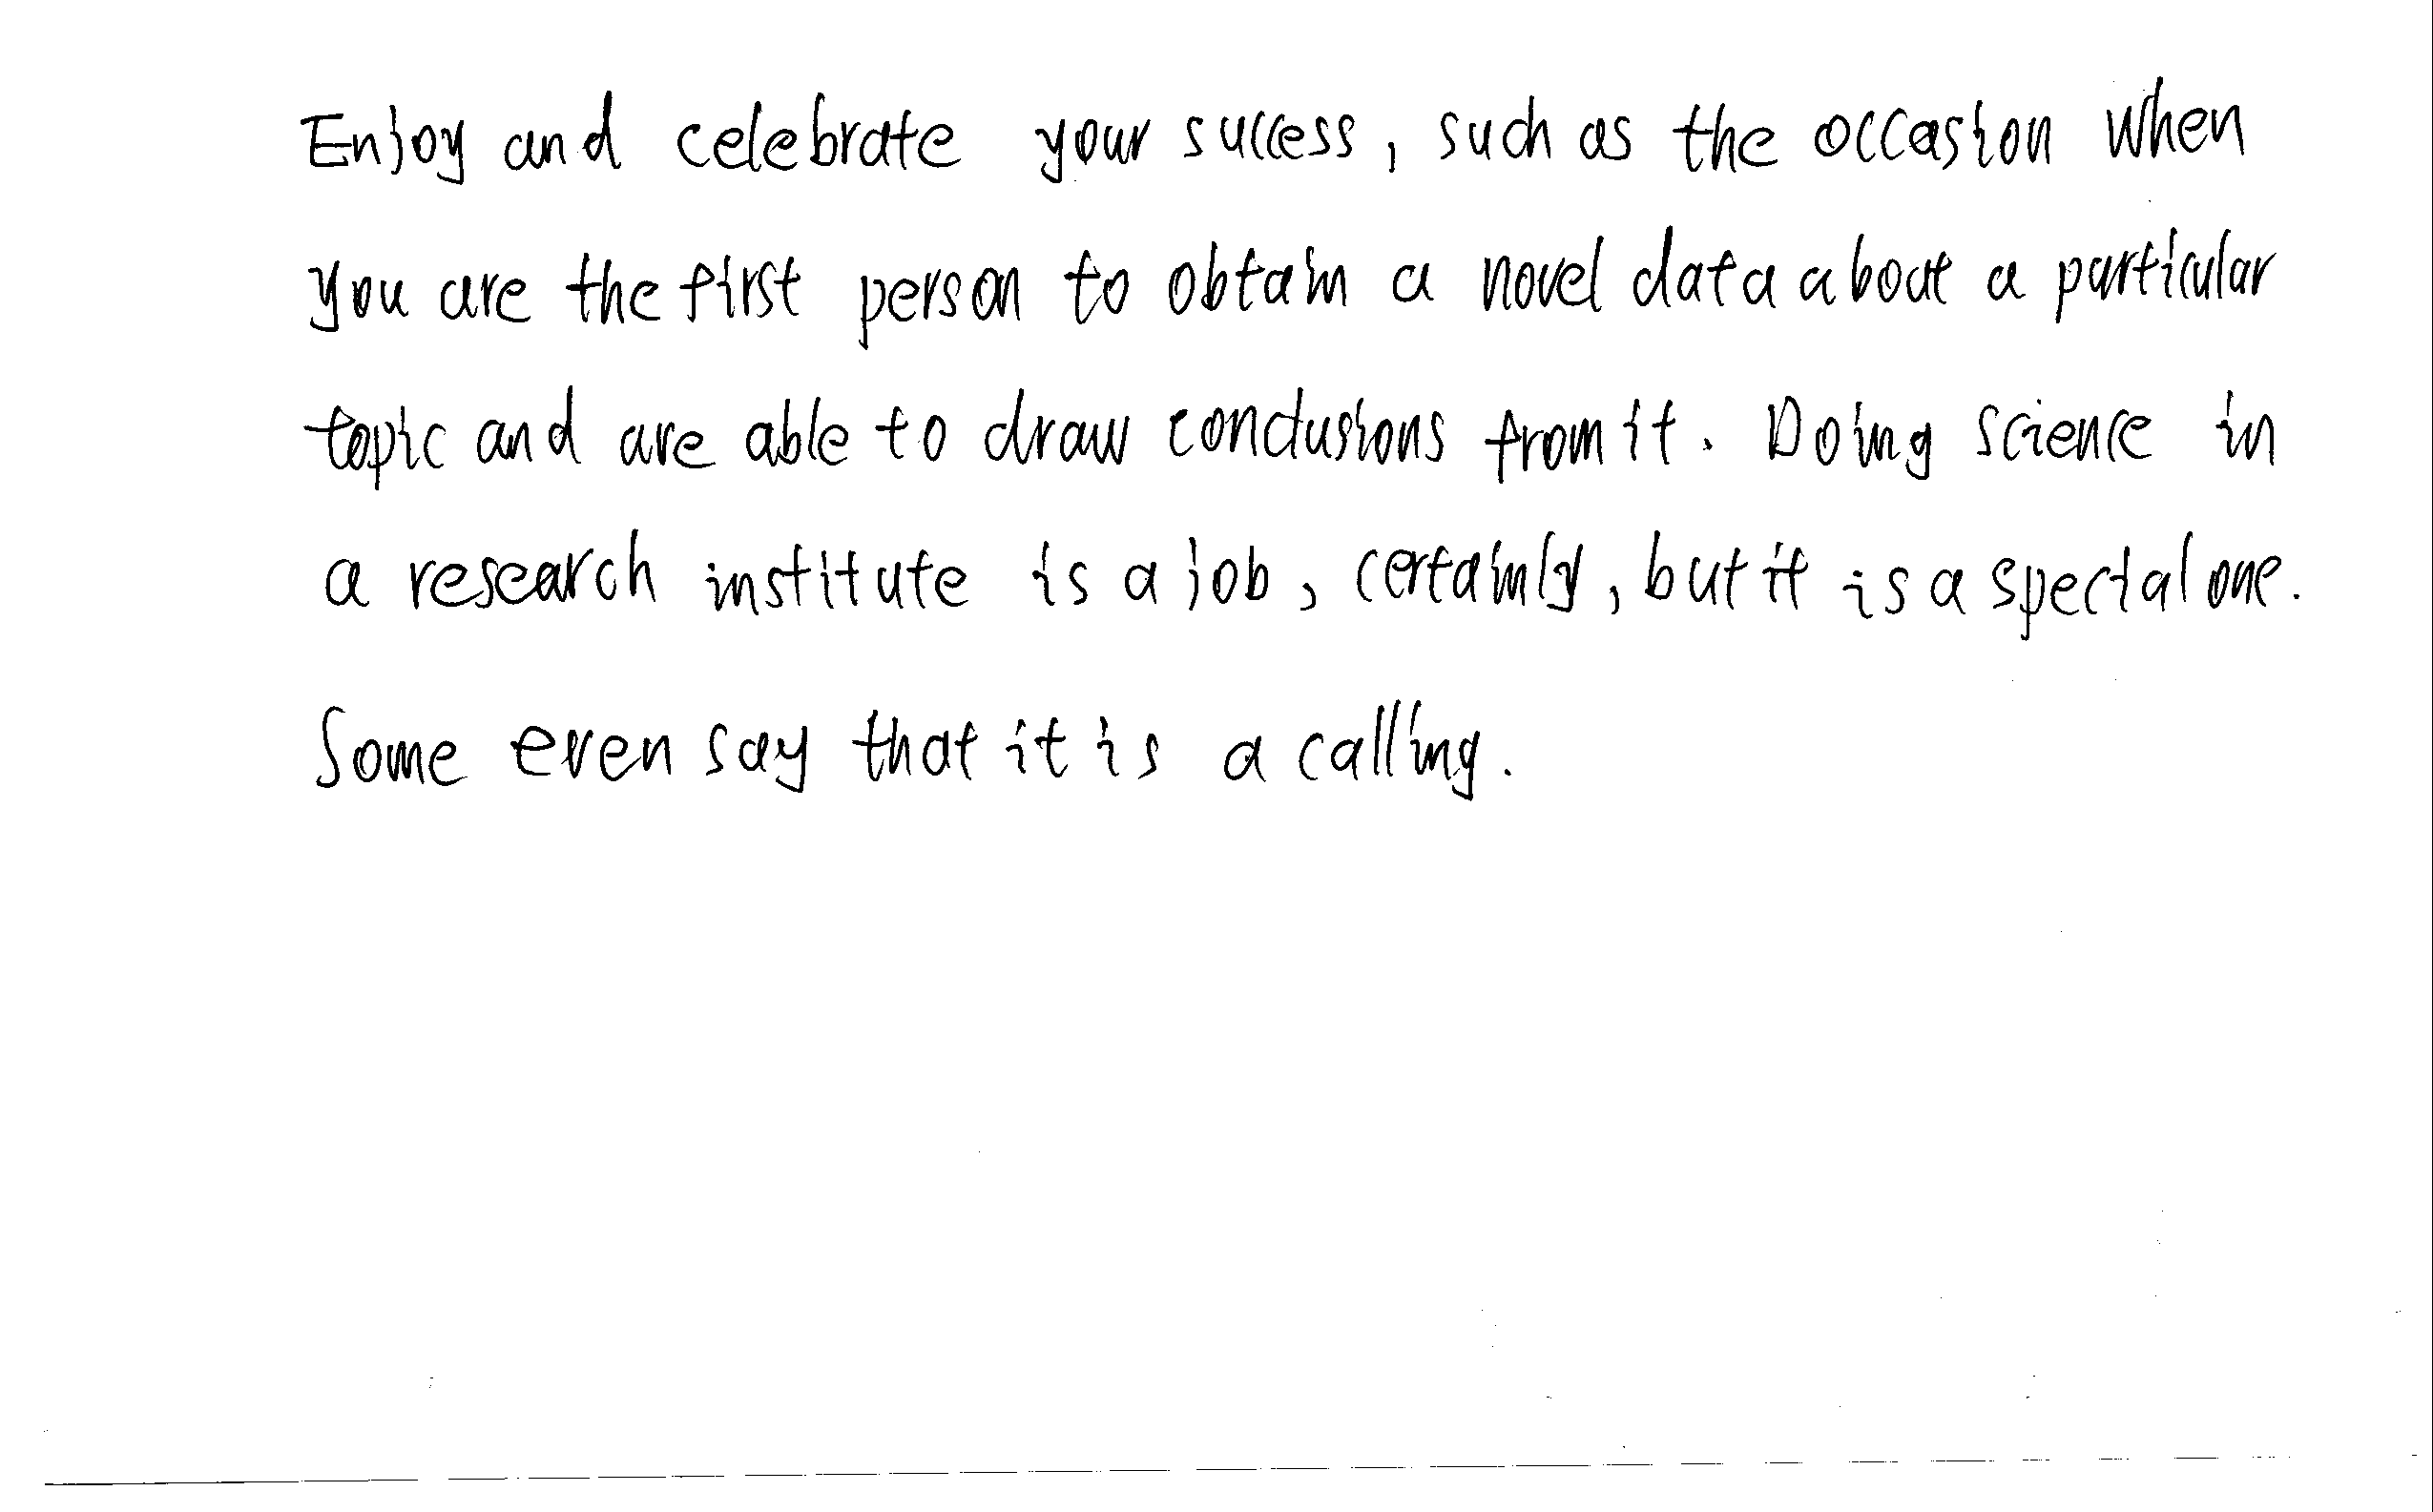 Enjoy and celebrate your success, such as the occasion when
you are the first person to obtain a novel data about a particular
topic and are able to draw conclusions from it. Doing science in
a research institute is a job, certainly, but it is a special one.
Some even say that it is a calling.